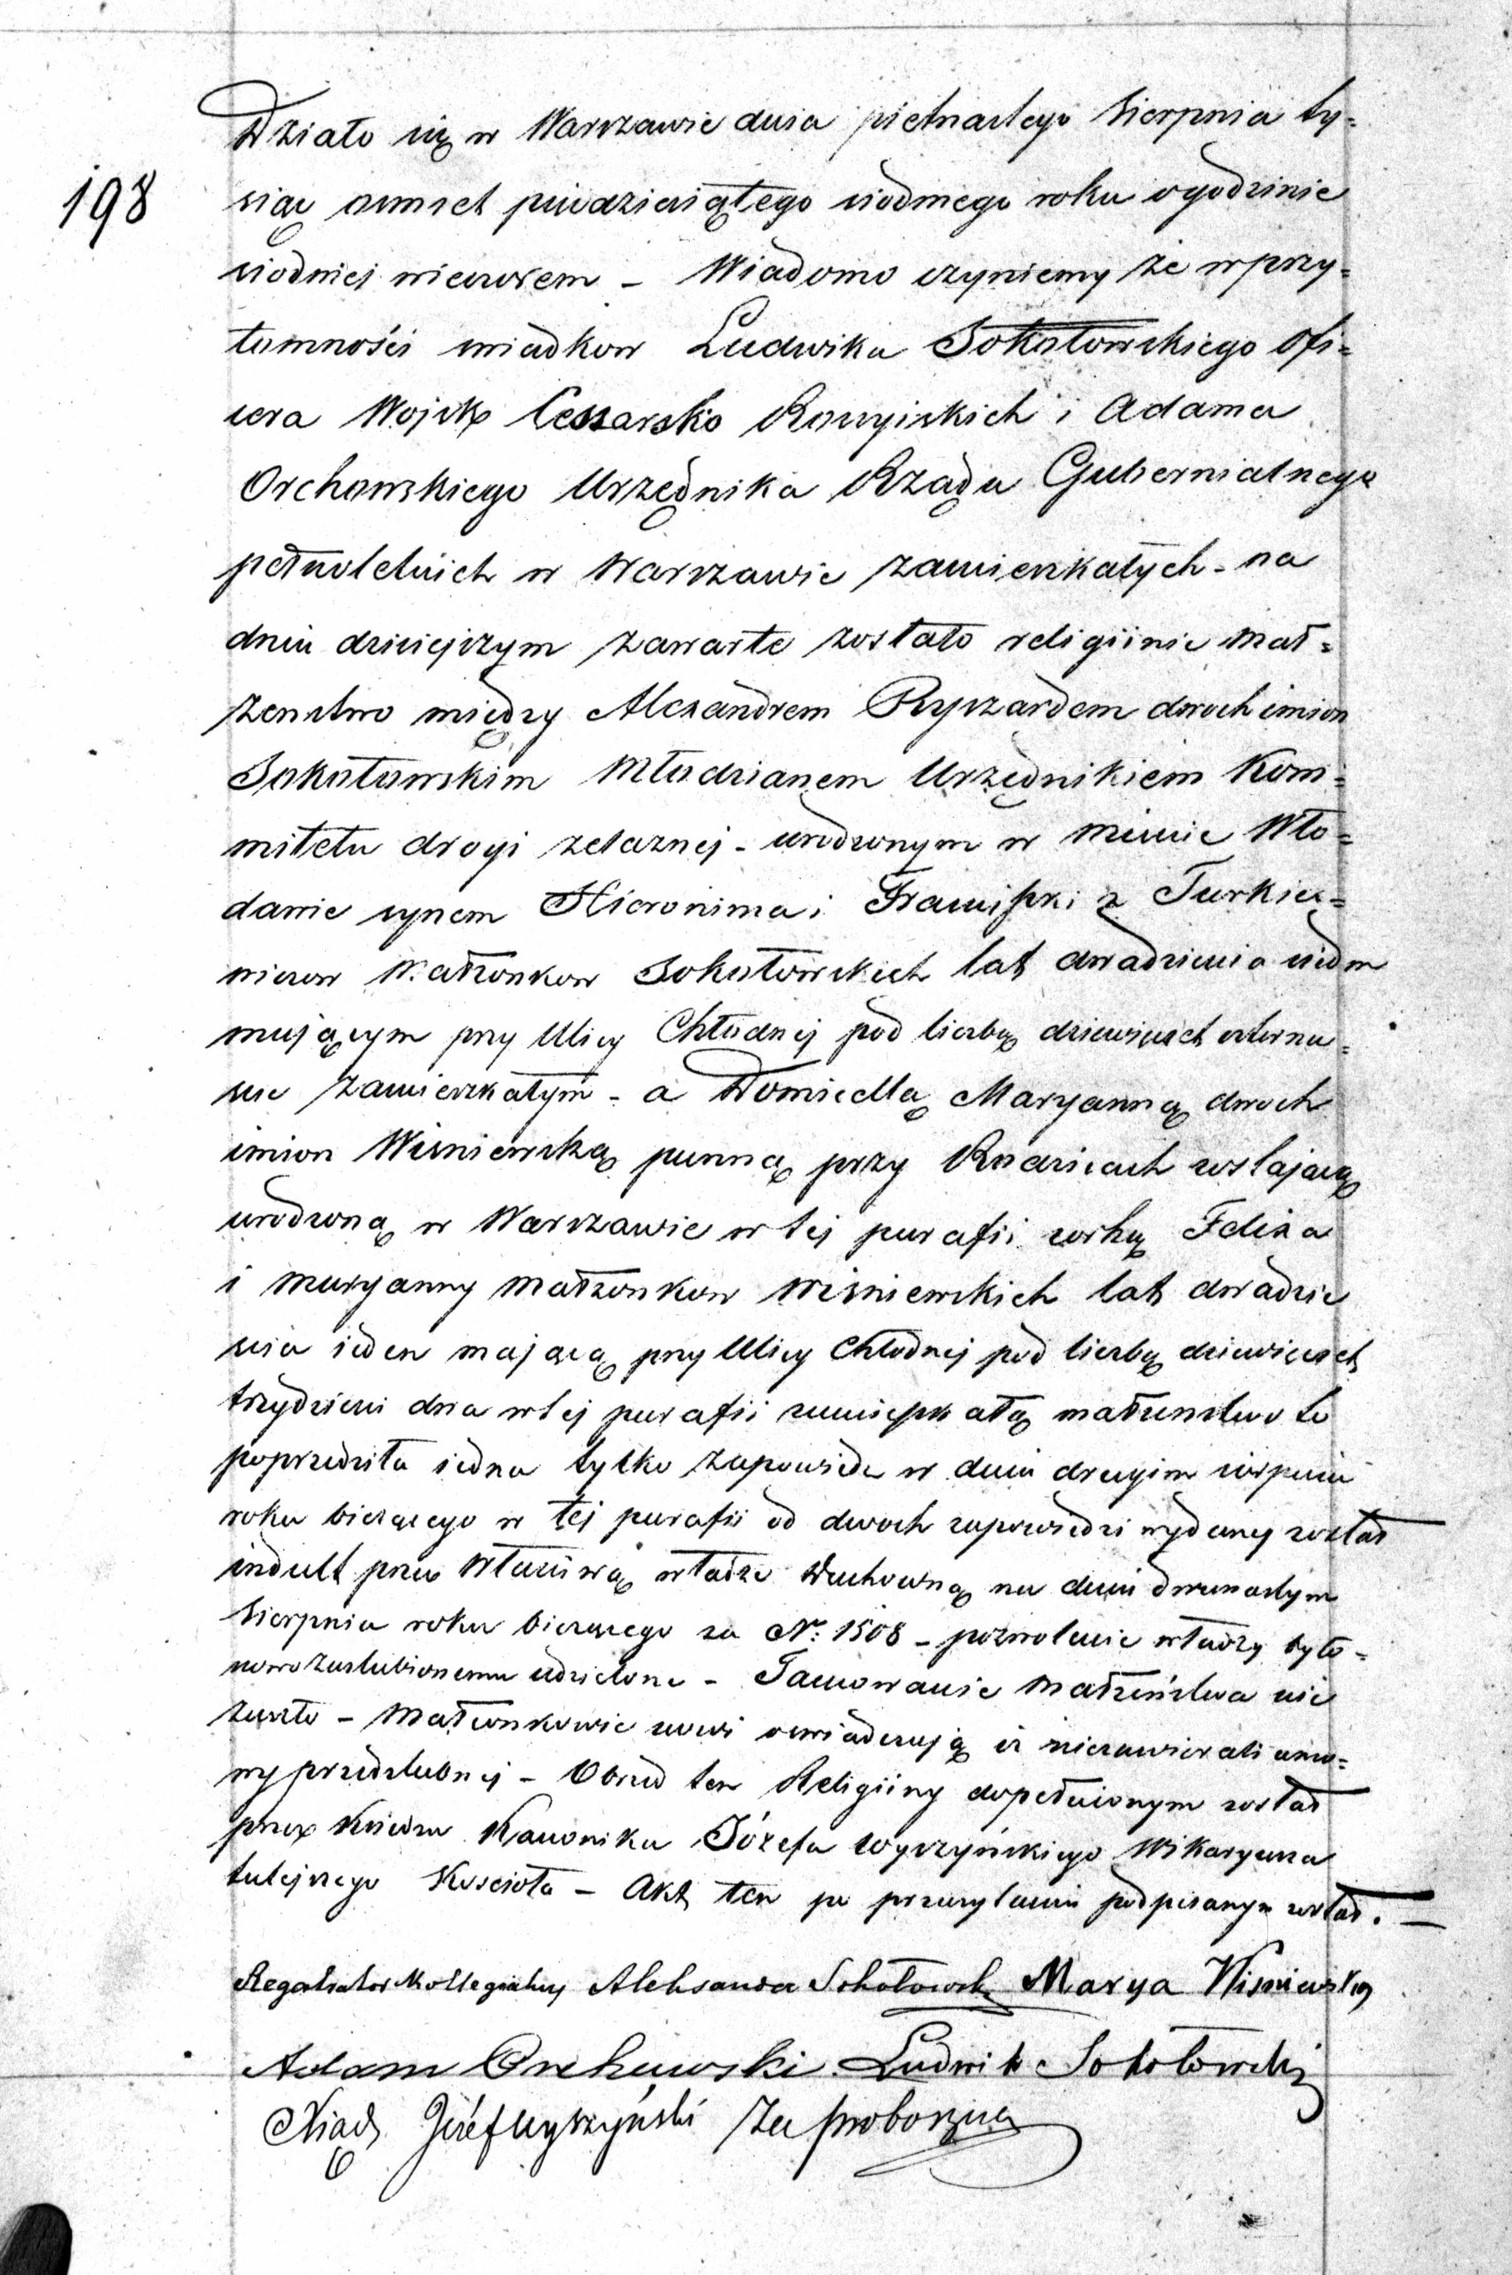 198
Działo się w Warszawie dnia pietnastego Sierpnia ty=
siąc osmset piedziesiątego siodmego roku o godzinie
siodmej wieczorem – Wiadomo czyniemy że w przy=
tomności swiadkow Ludwika Sokołowskiego Ofi=
cera Wojsk Cessarsko Rossyiskich i Adama
Orchowskiego Urzędnika Rządu Gubernialnego
pełnoletnich w Warszawie zamieszkałych – na
dniu dzisiejszym zawarte zostało religiinie Mał=
żenstwo między Alexandrem Ryszardem dwoch imion
Sokołowskim Młodzianem Urzędnikiem Kom=
mitetu drogi żelaznej – urodzonym w miescie Wło=
dawie synem Hieronima i Franciszki z Turkie=
wiczow Małżonkow Sokołowskich lat dwadziescia siedm
mającym przy Ulicy Chłodnej pod liczbą dziewięcset czterna=
scie zamieszkałym – a Domicellą Maryanną dwoch
imion Wisniewską panną przy Rodzicach zostającą
urodzoną w Warszawie w tej parafii corką Felixa
i Maryanny Małżonkow Wisniewskich lat dwadzie
scia ieden mającą przy Ulicy Chłodnej pod liczbą dziewięcset
trzydziesci dwa w tej parafii zamieszkałą małżenstwo to
poprzedziła iedna tylko zapowiedz w dniu drugim sierpnia
roku bieżącego w tej parafii od dwoch zapowiedzi wydany został
indult przez Własciwą władze Duchowną na dniu dwunastym
Sierpnia roku bieżącego za No: 1508 – pozwolenie władzy było
nowozaslubionemu udzielone – Tamowanie Małżeństwa nie
zaszło – Małżonkowie nowi oswiadczają iż niezawierali umo=
wy przedslubnej – Obrzęd ten Religiiny dopełnionym został
przez Xiedza Kanonika Józefa Wyszyńskiego Wikaryusza
tutejszego Koscioła – Akt ten po przeczytaniu podpisanym został. –
Regestrator Kollegialny Aleksander Sokołowski Marya Wisniewska
Adam Orchowski Ludwik Sokołowski
Xiądz Józef Wyszyński Za proboszcza